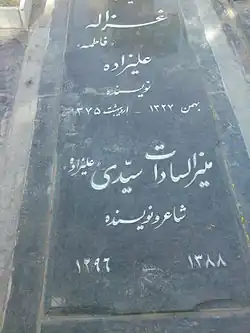 غزاله
«فاطمه»
علیزاده
نویسنده
بهمن ۱۳۲۷ - اردیبهشت ۱۳۷۵
منیرالسادات سیدی «علیزاده»
شاعر و نویسنده
۱۲۹۶ ۱۳۸۸